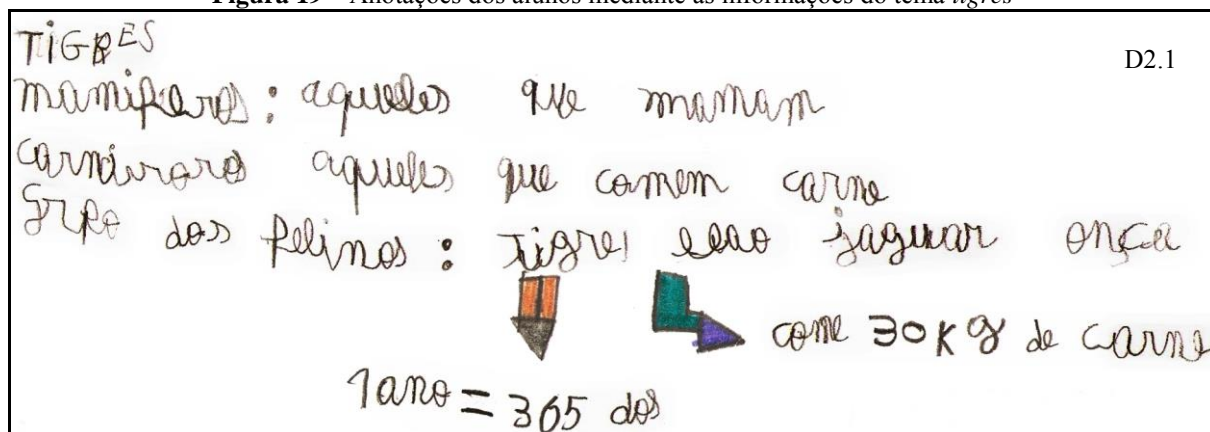 Figura 19 – Anotações dos alunos mediante as informações do tema tigres
D2.1
TIGRES
mamiferos: aqueles que mamam
carnívoros aqueles que comem carne
Grpo dos felinos: tigres leao jaguar onça
come 30 Kg de carne
1 ano = 365 dos